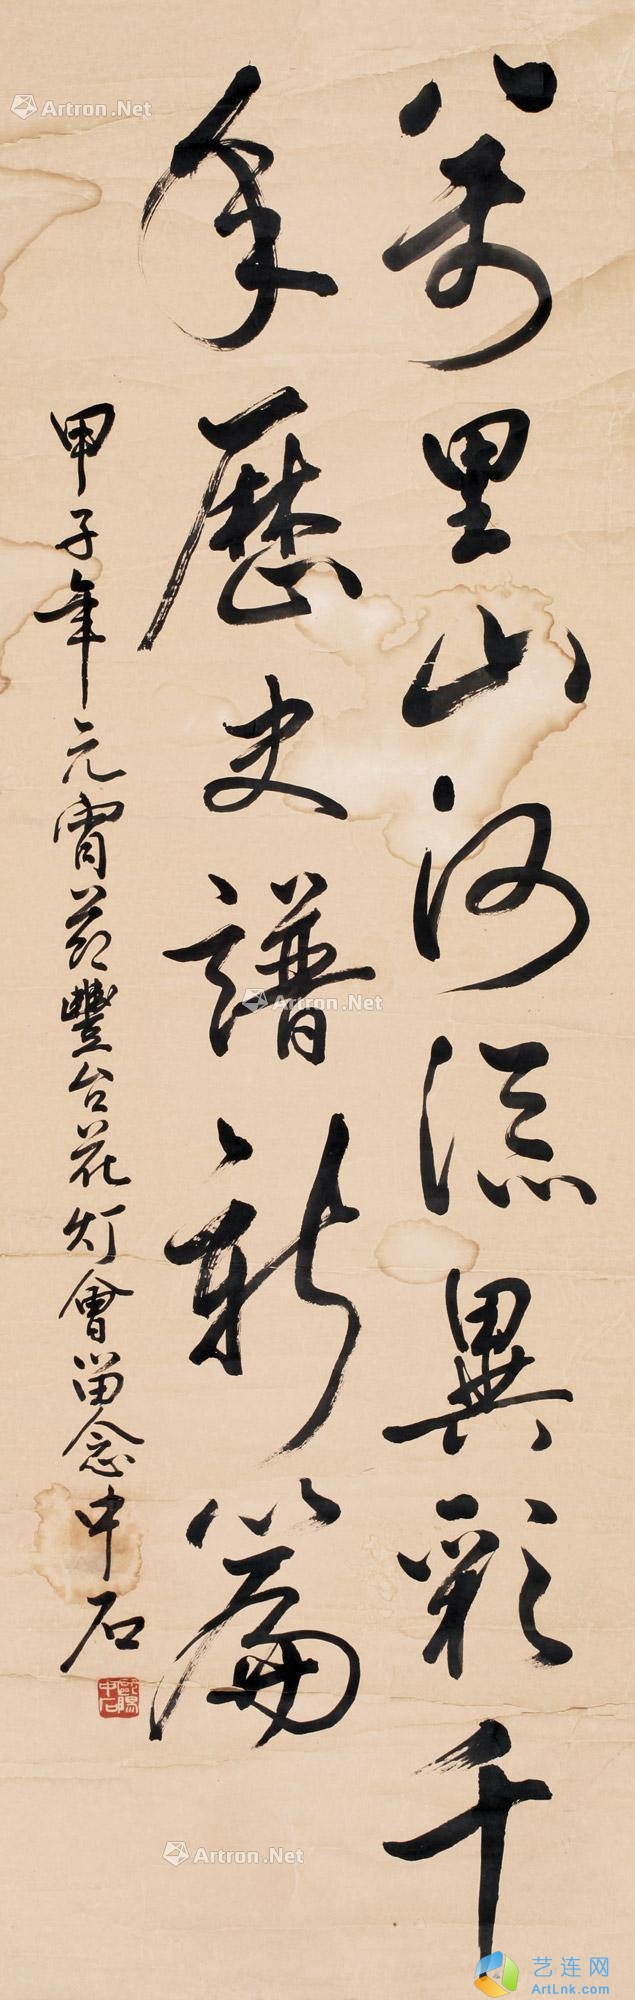 萬里山河流異彩千
年歷史譜新篇
甲子年元宵节豐台花灯會留念中石
歐陽中石
Artron.Net
Artron.Net
Artron.Net
艺连网
ArtLnk.com